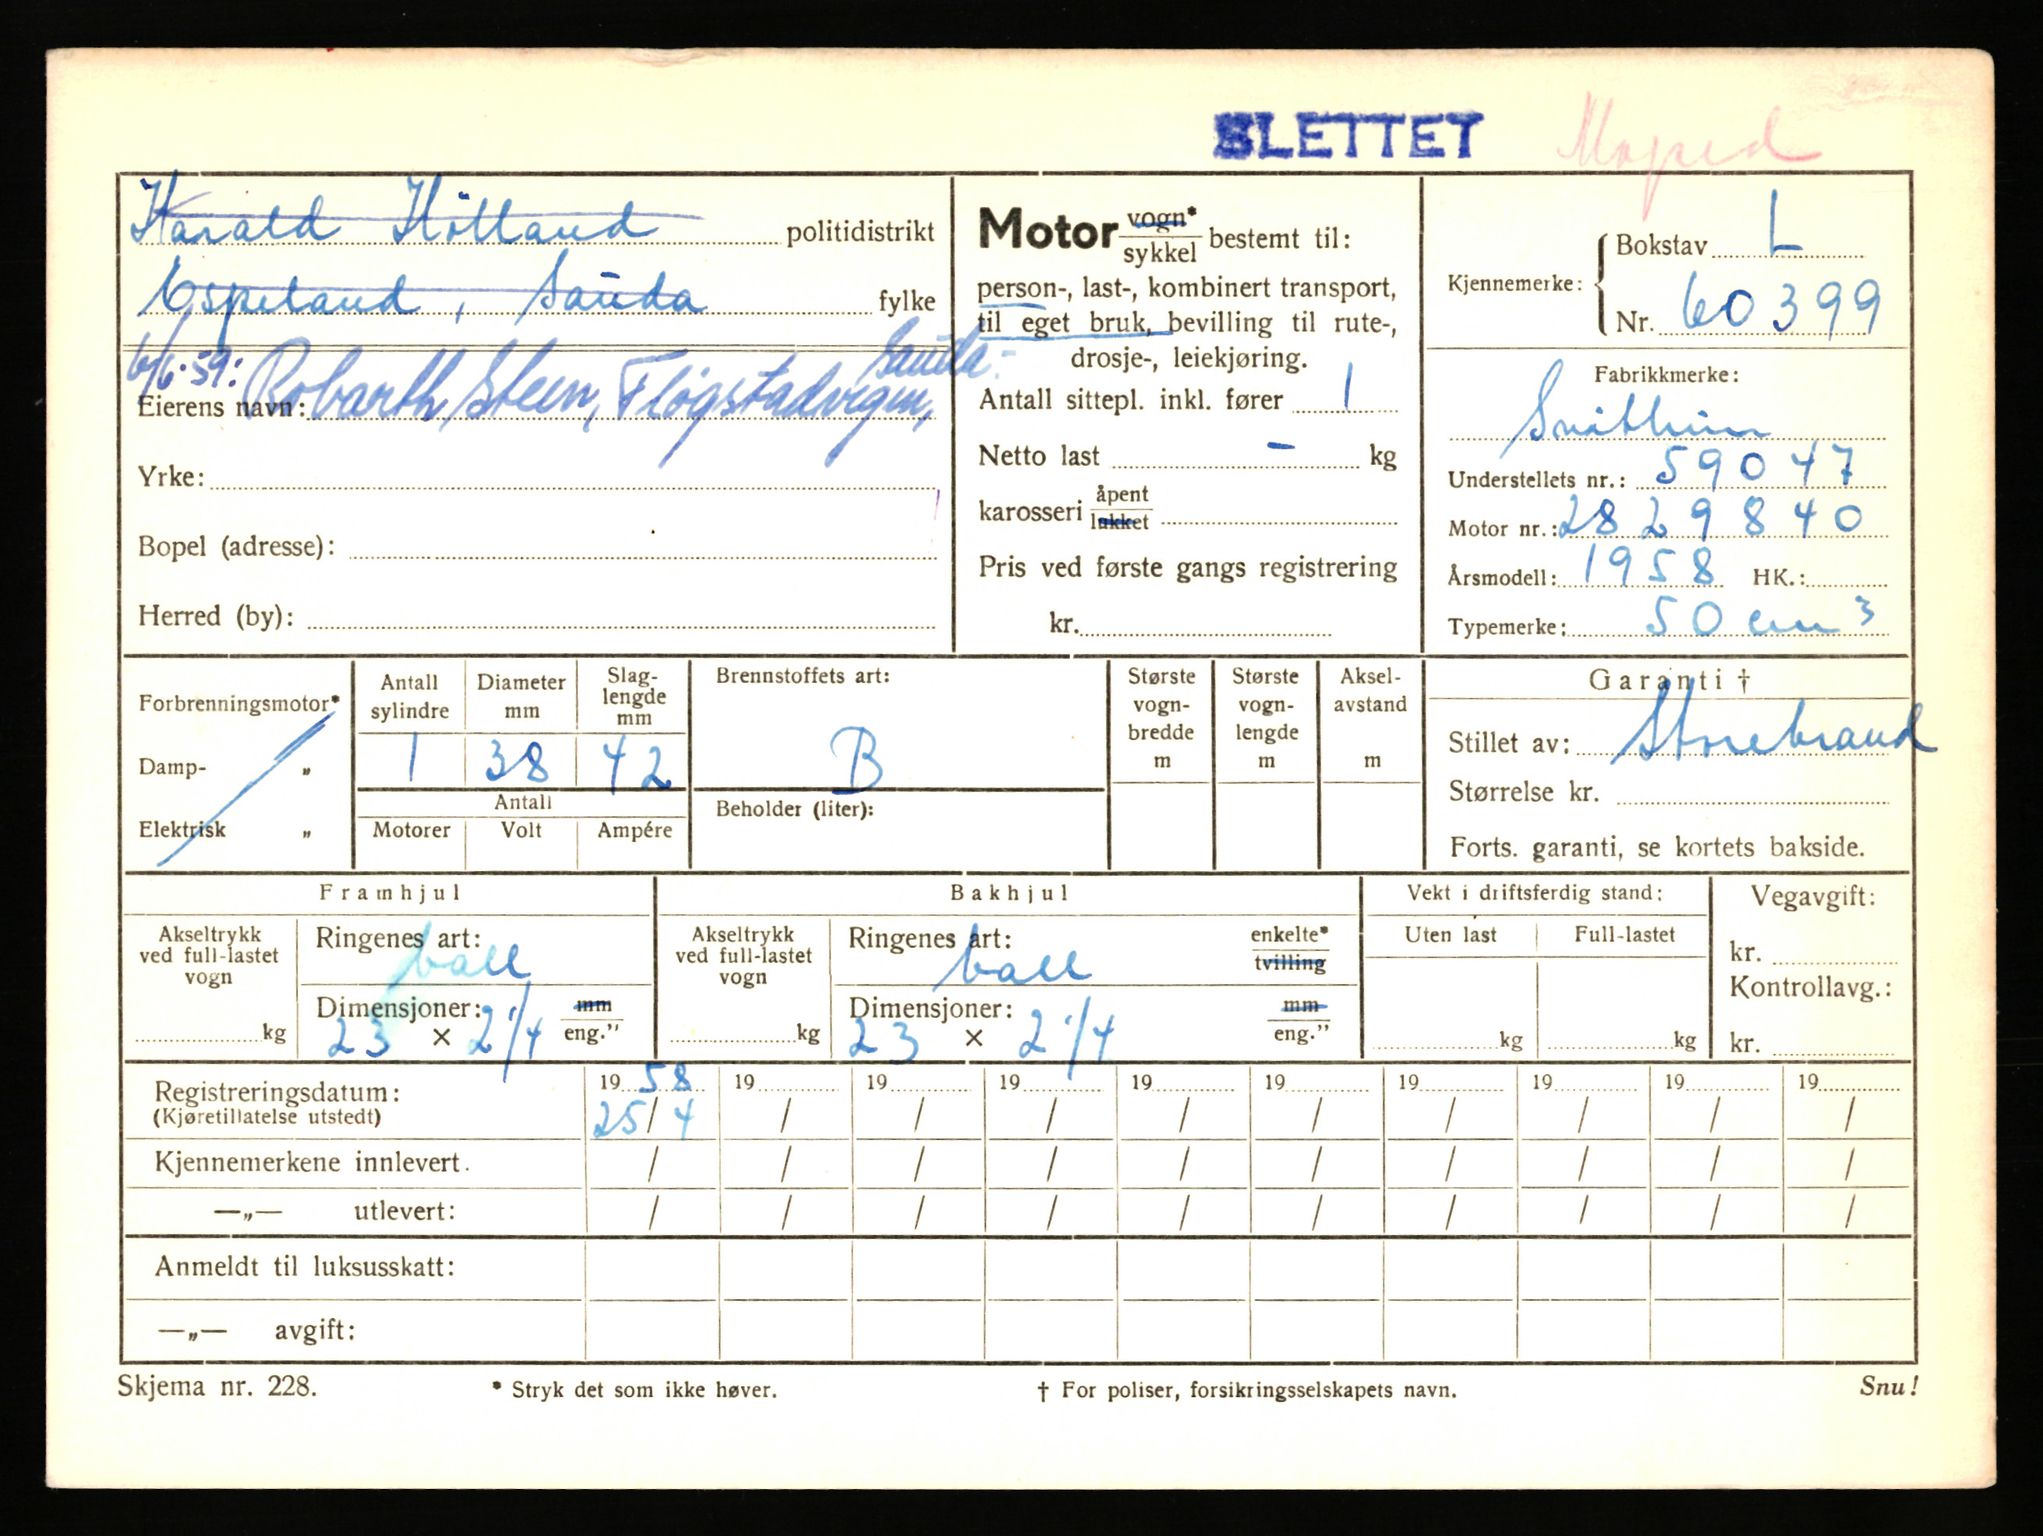 SLETTET Moped
Harald Hölland politidistrikt
Espeland, Sauda fylke
6/6.59: Robarth Steen, Fløgstadvegen, Sauda.
Eierens navn:
Yrke:
Bopel (adresse):
Herred (by):
Motor vogn* / sykkel bestemt til:
person-, last-, kombinert transport,
til eget bruk, bevilling til rute-,
drosje-, leiekjøring.
Antall sittepl. inkl. fører 1
Netto last - kg
karosseri åpent / lukket
Pris ved første gangs registrering
kr.
Kjennemerke: Bokstav L
Nr. 60399
Fabrikkmerke:
Understellets nr.: 59047
Motor nr.: 2829840
Årsmodell: 1958 HK.:
Typemerke: 50 cm3
Forbrenningsmotor*
Damp- „
Elektrisk „
Antall sylindre Diameter mm Slag-lengde mm
1 38 42
Antall
Motorer Volt Ampére
Brennstoffets art:
B
Beholder (liter):
Største vogn-bredde m
Største vogn-lengde m
Aksel-avstand m
Garanti †
Stillet av: Storebrand
Størrelse kr.
Forts. garanti, se kortets bakside.
Framhjul
Akseltrykk ved full-lastet vogn
kg
Ringenes art: ball
Dimensjoner: mm / eng."
23 × 2 1/4
Bakhjul
Akseltrykk ved full-lastet vogn
kg
Ringenes art: ball enkelte* / tvilling
Dimensjoner: mm / eng."
23 × 2 1/4
Vekt i driftsferdig stand:
Uten last Full-lastet
kg kg
Vegavgift:
kr.
Kontrollavg.:
kr.
Registreringsdatum: 1958 19 19 19 19 19 19 19 19 19
(Kjøretillatelse utstedt) 25/4 / / / / / / / / /
Kjennemerkene innlevert. / / / / / / / / / /
—„— utlevert: / / / / / / / / / /
Anmeldt til luksusskatt:
—„— avgift:
Skjema nr. 228. * Stryk det som ikke høver. † For poliser, forsikringsselskapets navn. Snu!